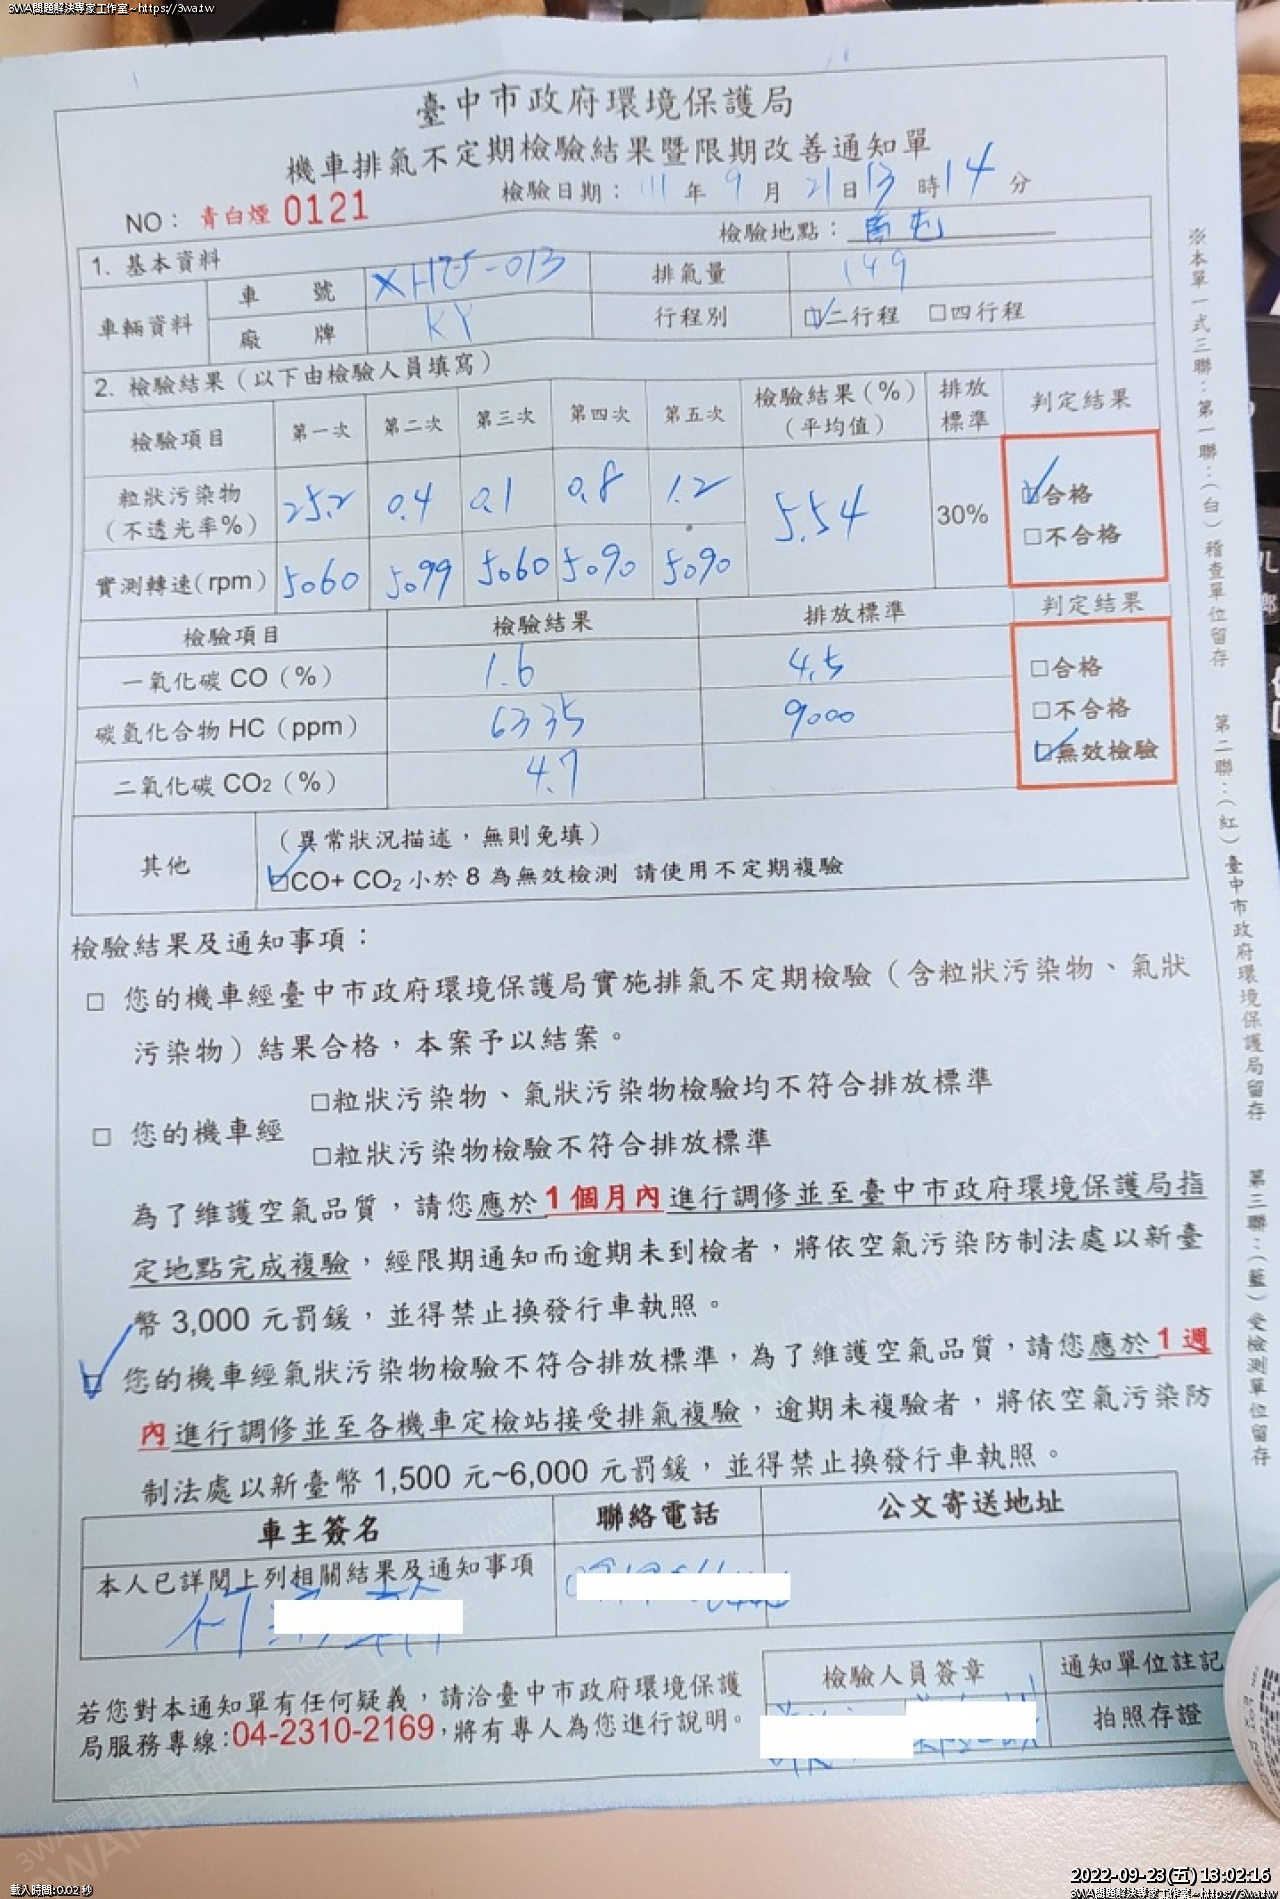 3WA問題解決專家工作室~https://3wa.tw
臺中市政府環境保護局
機車排氣不定期檢驗結果暨限期改善通知單
檢驗日期：111年9月21日13時14分
NO：青白煙 0121
檢驗地點：南屯
1. 基本資料
車輛資料 車號 -013 排氣量 149
廠牌 KY 行程別 ☑二行程 □四行程
2. 檢驗結果（以下由檢驗人員填寫）
檢驗項目 第一次 第二次 第三次 第四次 第五次 檢驗結果(%)（平均值） 排放標準 判定結果
粒狀污染物（不透光率%） 25.2 0.4 0.1 0.8 1.2 5.54 30% ☑合格 □不合格
實測轉速(rpm) 5060 5099 5060 5090 5090
檢驗項目 檢驗結果 排放標準 判定結果
一氧化碳 CO（%） 1.6 4.5 □合格
碳氫化合物 HC（ppm） 6335 9000 □不合格
二氧化碳 CO2（%） 4.7 ☑無效檢驗
其他 （異常狀況描述，無則免填）
☑CO+ CO2 小於 8 為無效檢測 請使用不定期複驗
檢驗結果及通知事項：
□ 您的機車經臺中市政府環境保護局實施排氣不定期檢驗（含粒狀污染物、氣狀
污染物）結果合格，本案予以結案。
□粒狀污染物、氣狀污染物檢驗均不符合排放標準
□ 您的機車經
□粒狀污染物檢驗不符合排放標準
為了維護空氣品質，請您應於 1 個月內進行調修並至臺中市政府環境保護局指
定地點完成複驗，經限期通知而逾期未到檢者，將依空氣污染防制法處以新臺
幣 3,000 元罰鍰，並得禁止換發行車執照。
☑ 您的機車經氣狀污染物檢驗不符合排放標準，為了維護空氣品質，請您應於 1 週
內進行調修並至各機車定檢站接受排氣複驗，逾期未複驗者，將依空氣污染防
制法處以新臺幣 1,500 元~6,000 元罰鍰，並得禁止換發行車執照。
車主簽名 聯絡電話 公文寄送地址
本人已詳閱上列相關結果及通知事項
檢驗人員簽章 通知單位註記
拍照存證
若您對本通知單有任何疑義，請洽臺中市政府環境保護
局服務專線:04-2310-2169,將有專人為您進行說明。
※本單一式三聯：第一聯：（白）稽查單位留存 第二聯：（紅）臺中市政府環境保護局留存 第三聯：（藍）受檢測單位留存
載入時間:0.02 秒
2022-09-23(五) 13:02:16
3WA問題解決專家工作室~https://3wa.tw